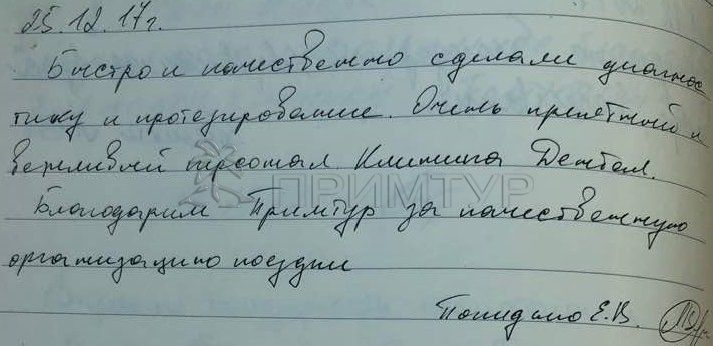 25.12.17г.
Быстро и качественно сделали диагнос
тику и протезирование. Очень приятный и
вежливый персонал Клиника Дентал.
ПРИМТУР
Благодарим Примтур за качественную
организацию поездки
Е.В.